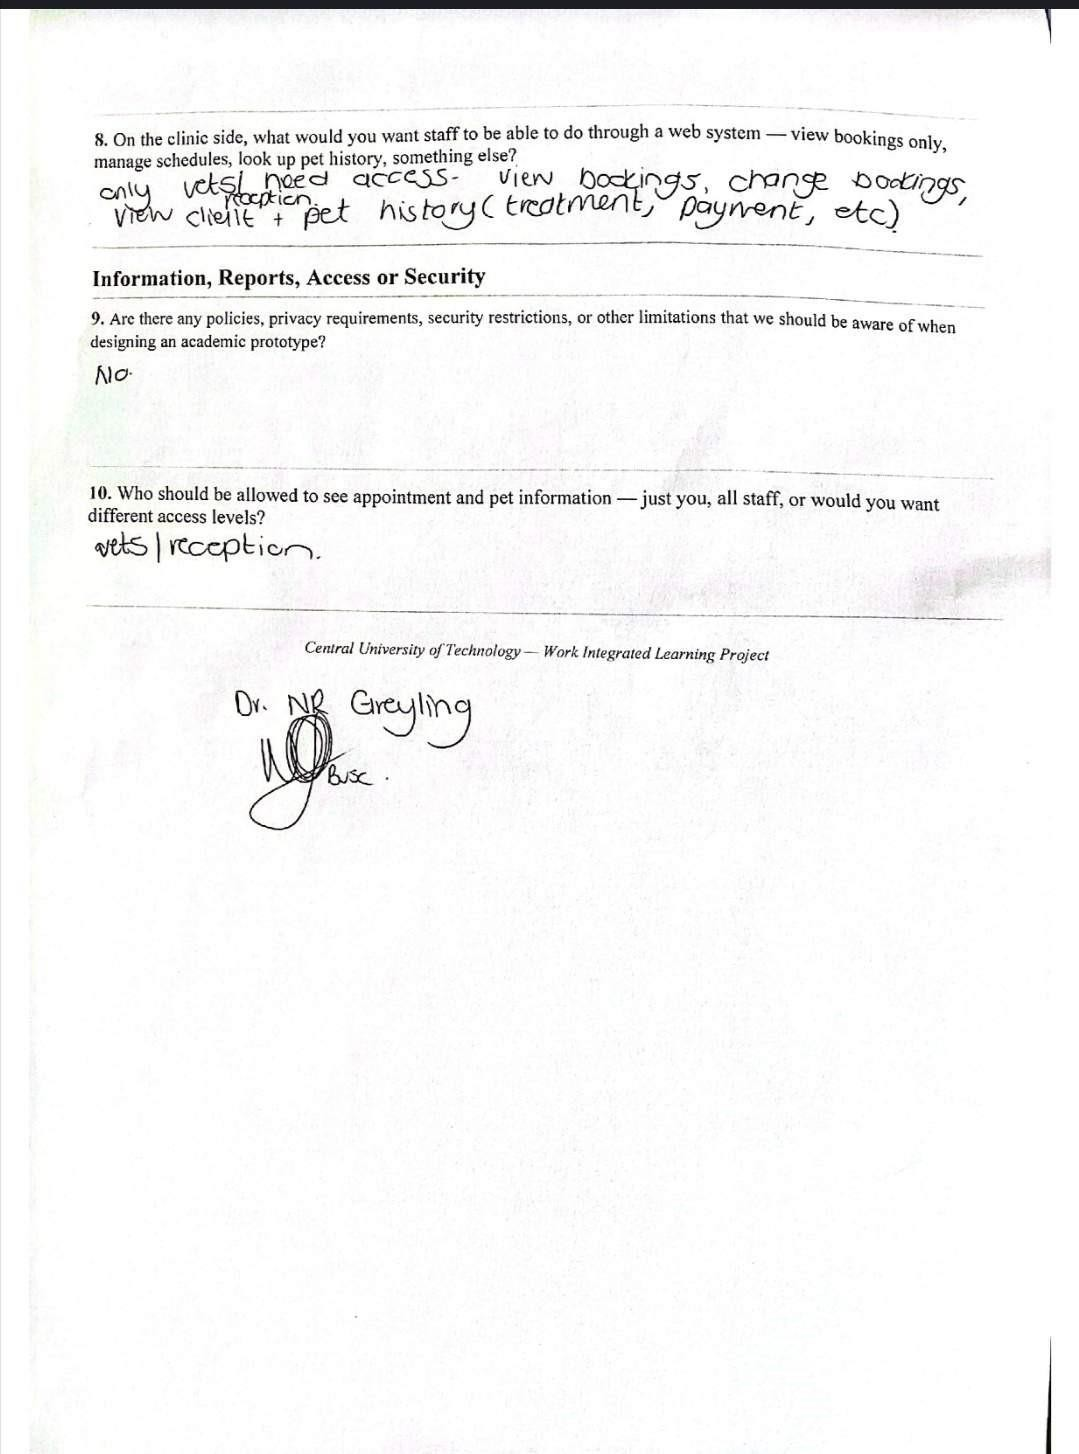 8. On the clinic side, what would you want staff to be able to do through a web system — view bookings only,
manage schedules, look up pet history, something else?
only vets/ need access- view bookings, change bookings,
reception.
view client + pet history (treatment, payment, etc)
Information, Reports, Access or Security
9. Are there any policies, privacy requirements, security restrictions, or other limitations that we should be aware of when
designing an academic prototype?
No.
10. Who should be allowed to see appointment and pet information — just you, all staff, or would you want
different access levels?
vets | reception.
Central University of Technology — Work Integrated Learning Project
Dr. NR Greyling
BVSC.